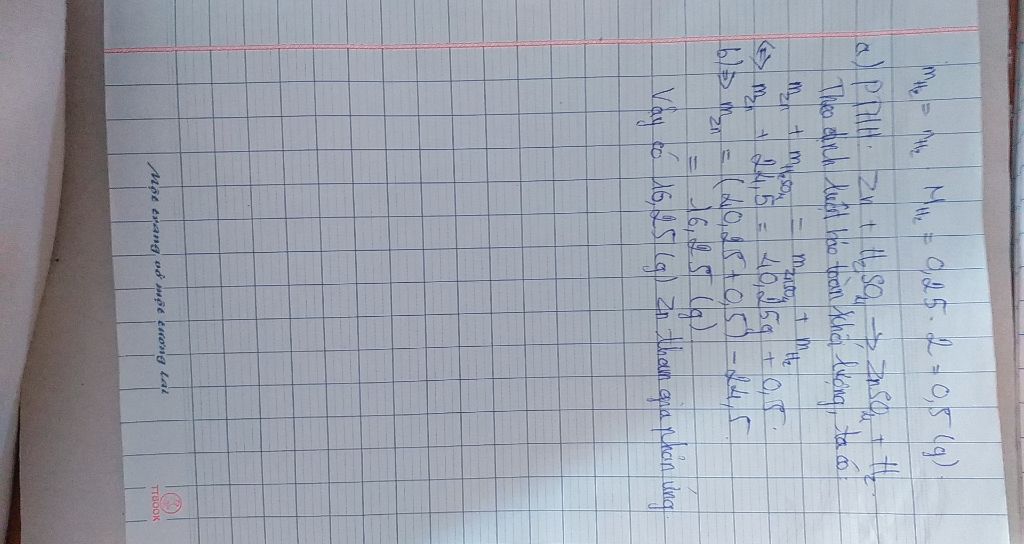 mH₂ = nH₂ . MH₂ = 0,25 . 2 = 0,5 (g).
a) PTHH: Zn + H₂SO₄ → ZnSO₄ + H₂.
Theo định luật bảo toàn khối lượng, ta có:
mZn + mH₂SO₄ = mZnSO₄ + mH₂
⇔ mZn + 24,5 = 40,25g + 0,5.
b) ⇒ mZn = (40,25 + 0,5) - 24,5
= 16,25 (g)
Vậy có 16,25 (g) Zn tham gia phản ứng.
Một trang vở một tương lai
TTBOOK